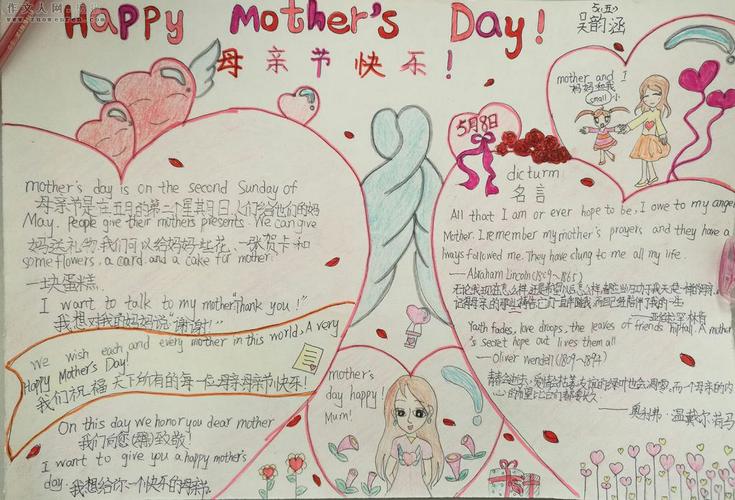 作文人网
Happy Mother's Day!
母亲节快乐!
五(五)
吴韵涵
mother and I
妈妈和我
small 小
5月8日
dicturm
名言
mother's day is on the second Sunday of
母亲节是在五月的第二个星期日,人们给他们的妈
May. People give their mothers presents. We can give
妈送礼物,我们可以给妈妈红花、一张贺卡和
some flowers, a card and a cake for mother.
一块蛋糕.
I want to talk to my mother "Thank you!"
我想对我的妈妈说"谢谢!"
We wish each and every mother in this world, A very
Happy Mother's Day!
我们祝福天下所有的每一位母亲母亲节快乐!
On this day we honor you dear mother
我们向您致敬!
I want to give you a happy mother's
day. 我想给你一个快乐的母亲节
All that I am or ever hope to be, I owe to my angel
Mother. I remember my mother's prayers and they have a
lways followed me. They have clung to me all my life.
——Abraham Lincoln (1809~1865)
无论我现在怎么样,还是希望以后怎么样,都应当归功于我天使一样的母亲,
记得母亲的那些祷告,它们一直伴随我,而且已经陪伴了我的一生
——亚伯拉罕·林肯
Youth fades, love droops, the leaves of friends hip fall. A mother
's secret hope out lives them all
——Oliver wendell (1809~1894)
青春会逝去,爱情会枯萎,友谊的绿叶也会凋零,而一个母亲的内
心的希望比它们都要长久
——奥利弗·温戴尔·荷马
mother's
day happy!
Mum!